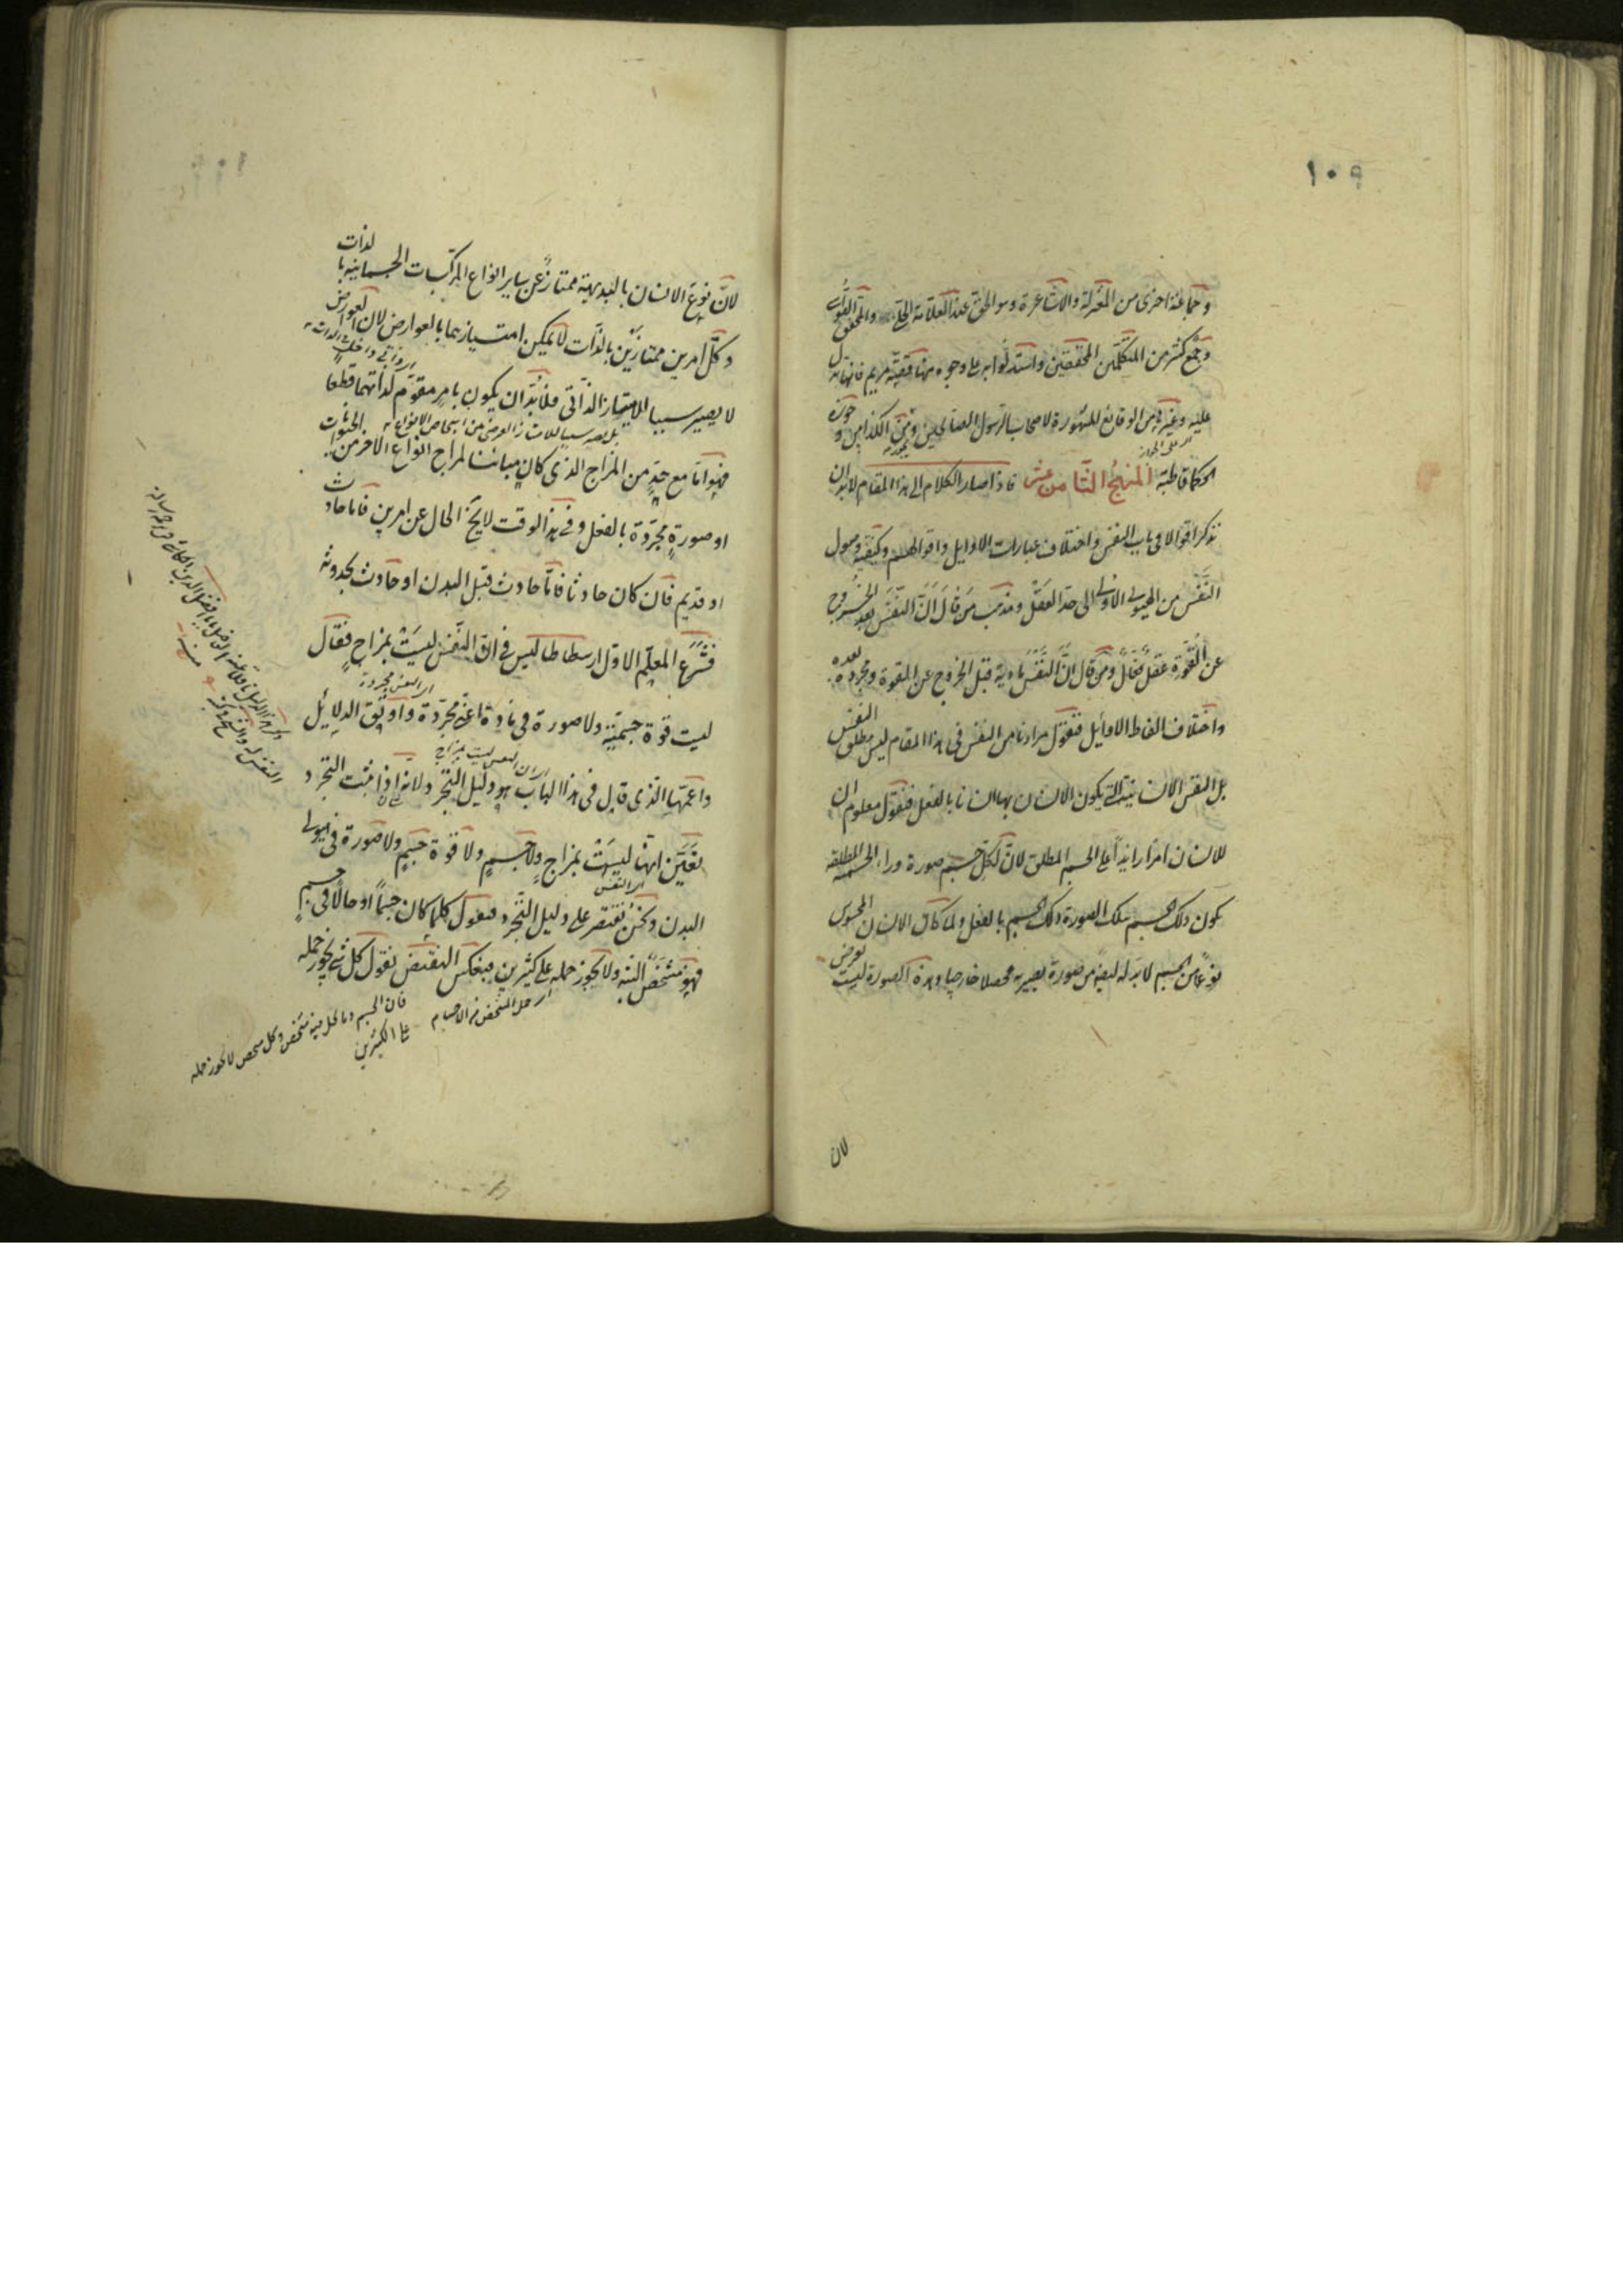 ١٠٩
وجماعة اخرى من المعتزلة والاشاعرة وهو الحق عند العلامة الحلي والمحقق القوشي
وجمع كثير من المتكلمين المحققين واستدلوا به على وجوه منها قصة مريم فانها تدل
عليه وغيرها من الوقايع المشهورة لاصحاب الرسول الصالحين ومن الكذابين و
الحكما قاطبة المنهج الثامن عشر فاذا صار الكلام الى هذا المقام لابد ان
نذكر اقوالا فى باب النفس واختلاف عبارات الاوايل واقوالهم وكيفية وصول
النفس من الهيولى الاولى الى حد العقل ومذهب من قال ان النفس بعد الخروج
عن القوة عقل فعال ومن قال ان النفس مادية قبل الخروج عن القوة ومجردة بعده
واختلاف الفاظ الاوايل فنقول مرادنا من النفس فى هذا المقام ليس مطلق النفس
بل النفس الانسانية التى يكون الانسان بها انسانا بالفعل فنقول معلوم ان
للانسان امرا زايدا على الجسم المطلق لان لكل جسم صورة وراء الجسمية المطلقة
يكون ذلك الجسم بتلك الصورة ذلك الجسم بالفعل ولما كان الانسان المحسوس
نوعا من الجسم لابد له ايضا من صورة يصير به محصلا خارجيا وهذه الصورة ليست بعرض
لان
لان نوع الانسان بالبديهة ممتاز عن ساير انواع المركبات الجسمانية بالذات
وكل امرين ممتازين بالذات لا يمكن امتيازهما بالعوارض لان العوارض
لا يصير سببا للامتياز الذاتى فلابد ان يكون بامر مقوم لذاتهما قطعا
فهو اما مع حد من المزاج الذى كان مباينا لمزاج انواع الاخر من الحيوانات
او صورة مجردة بالفعل وفى هذا الوقت لا يخ الحال عن امرين فاما حادث
او قديم فان كان حادثا فاما حادث قبل البدن او حادث بحدوثه
فشرع المعلم الاول ارسطاطاليس فى ان النفس ليست بمزاج فقال
ليست قوة جسمية ولا صورة فى مادة اعنى مجردة واوثق الدلايل
واعمها الذى قابل فى هذا الباب هو دليل التجرد لانه اذا ثبت التجرد
تعين انها ليست بمزاج ولا جسم ولا قوة جسم ولا صورة فى هيولى
البدن ونحن نقتصر على دليل التجرد فنقول كلما كان جسما او حالا فى جسم
فهو متشخص البتة ولا يجوز حمله على كثيرين فبعكس النقيض نقول كل شئ يجوز حمله
فان الجسم وما يحل فيه متشخص وكل متشخص لا يجوز حمله
على الكثيرين